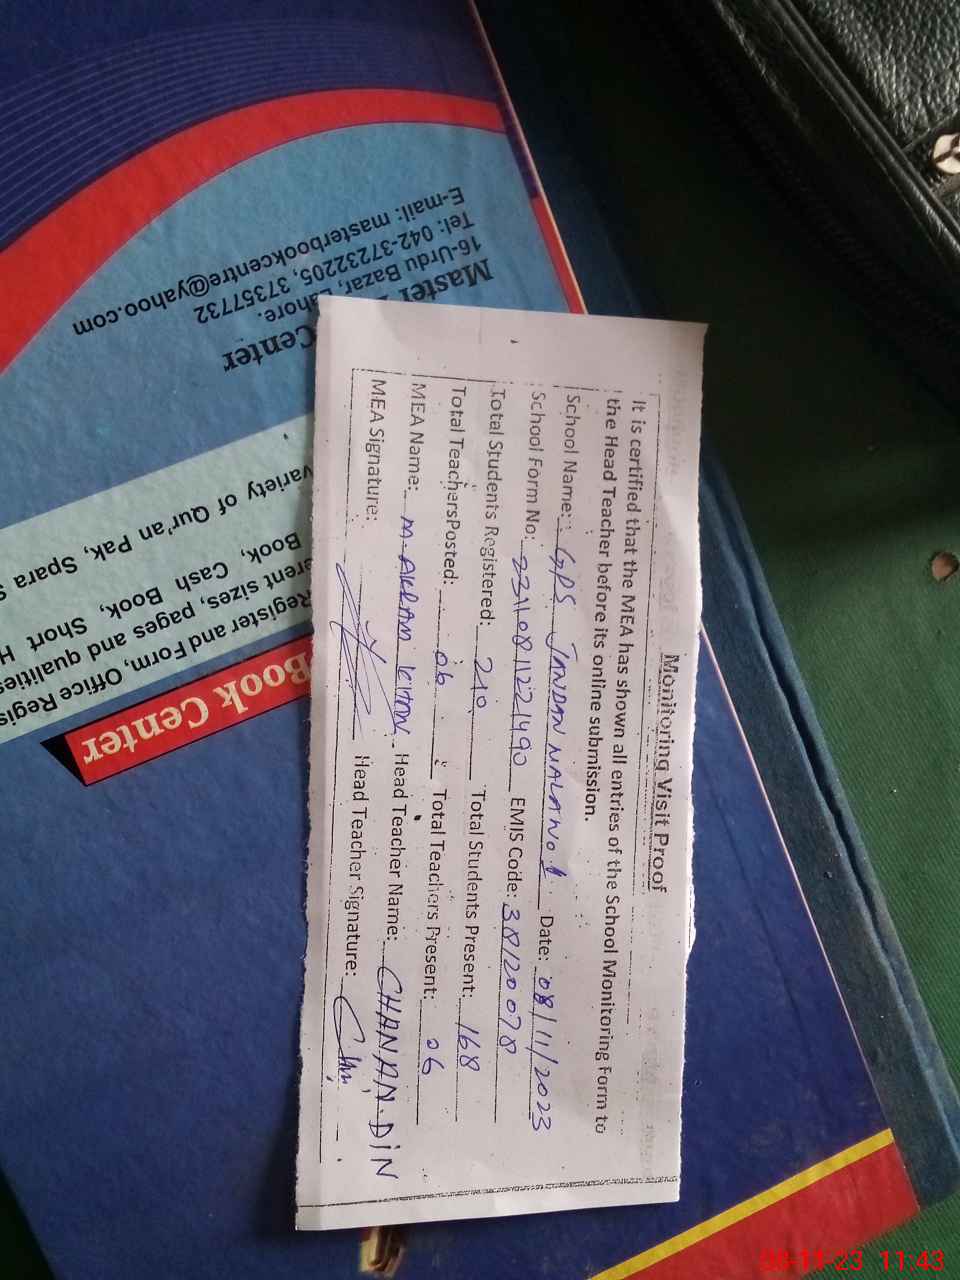 Monitoring Visit Proof
It is certified that the MEA has shown all entries of the School Monitoring Form to
the Head Teacher before its online submission.
School Name: GPS JNDAN WALA NO 1 Date: 08/11/2023
School Form No: 23110811221490 EMIS Code: 38120078
Total Students Registered: 210 Total Students Present: 168
Total TeachersPosted: 06 Total Teachers Present: 06
MEA Name: M. AKRAM KHAN Head Teacher Name: CHANAN DIN
MEA Signature: Head Teacher Signature:
Master Center
16-Urdu Bazar, Lahore.
Tel: 042-37232205, 37357732
E-mail: masterbookcentre@yahoo.com
Book Center
Register and Form, Office Regis
erent sizes, pages and qualities
Book, Cash Book, Short H
variety of Qur'an Pak, Spara S
08-11-23 11:43